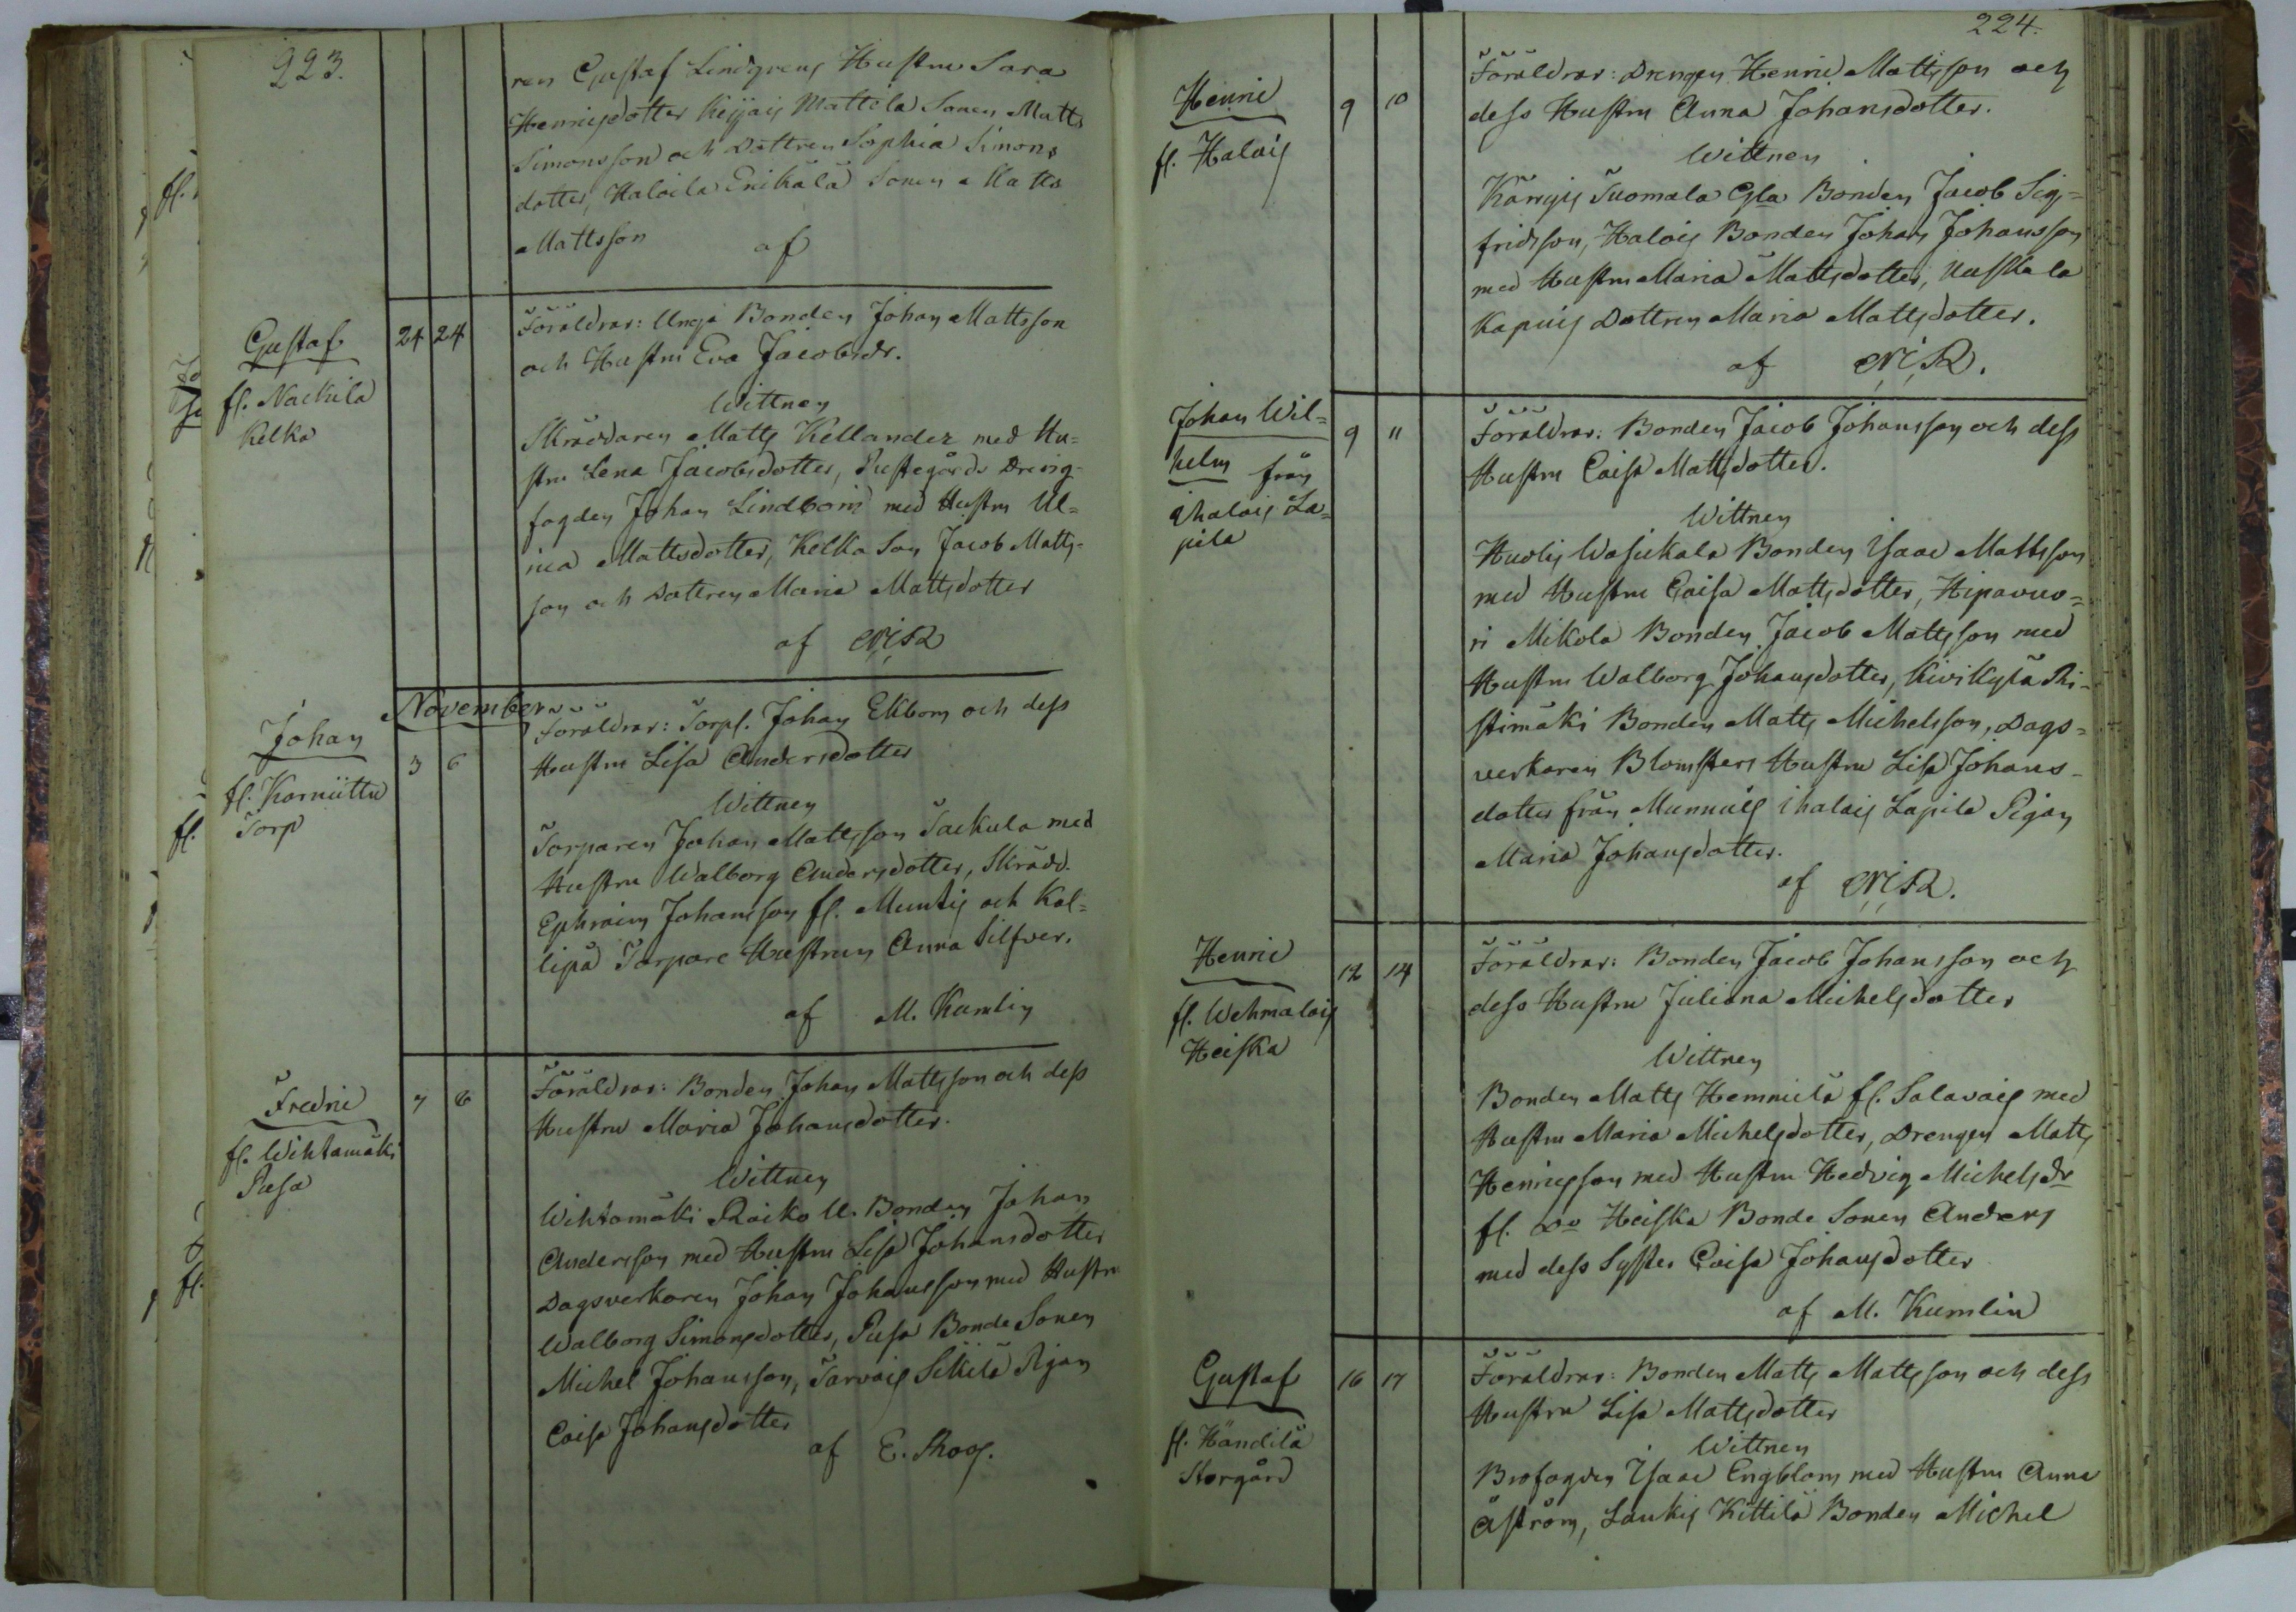 223.
ren Gustaf Lindgrens Hustru Sara
Henricsdotter Keijais Mattila Sonen Matts
Simonsson och Dottren Sophia Simons
dotter, Haloila Erikälä Sonen Matts
Mattsson af
Gustaf 24 24
fl. Nackila
Kelka
Föräldrar: Unga Bonden Johan Mattsson
och Hustru Eva Jacobsdr.
Wittnen
Skräddaren Matts Kellander med Hu=
stru Lena Jacobsdotter, Prestegårds Dreng-
fogden Johan Lindbom med Hustru Ul=
rica Mattsdotter, Kelka Son Jacob Matts-
son och Dottren Maria Mattsdotter
af N.C.R
November
Johan 3 6
fl. Korniittu
Torp
Föräldrar: Torpf. Johan Ekbom och dess
Hustru Lisa Andersdotter
Wittnen
Torparen Johan Mattsson Tackula med
Hustru Walborg Andersdotter, Skrädd.
Ephraim Johansson fl. Muntis och Kal=
lipä Torpare Hustrun Anna Silfver.
af M. Kumlin
Fredric 7 8
fl. Wihtamäki
Pusa
Föräldrar: Bonden Johan Mattsson och dess
Hustru Maria Johansdotter.
Wittnen
Wihtamäki Raiko U. Bonden Johan
Andersson med Hustru Lisa Johansdotter
Dagsverkaren Johan Johansson med Hustru
Walborg Simonsdotter, Pusa Bonde Sonen
Michel Johansson, Tarvais Sikilä Pigan
Caisa Johansdotter
af E. Skog.
224.
Henric 9 10
fl. Halois
Föräldrar: Drengen Henric Mattsson och
dess Hustru Anna Johansdotter.
Wittnen
Kärryis Tuomala Gla Bonden Jacob Sig=
fridsson, Halois Bonden Johan Johansson
med Hustru Maria Mattsdotter, Uuskala
Kapuis Dottren Maria Mattsdotter.
af N.C.R.
Johan Wil= 9 11
helm från
ihalais La=
pila
Föräldrar: Bonden Jacob Johansson och dess
Hustru Caisa Mattsdotter.
Wittnen
Huolis Wasukala Bonden Isaac Mattsson
med Hustru Caisa Mattsdotter, Hipavuo=
ri Mikola Bonden Jacob Mattsson med
Hustru Walborg Johansdotter, Kivikylä Ri-
stimäki Bonden Matts Michelsson, Dags=
verkaren Blomsters Hustru Lisa Johans-
dotter från Munnuis ihalais Lapila Pigan
Maria Johansdotter.
af N.C.R.
Henric 12 14
fl. Wehmalais
Heiska
Föräldrar: Bonden Jacob Johansson och
dess Hustru Juliana Michelsdotter
Wittnen
Bonden Matts Hemmilä fl. Salavais med
Hustru Maria Michelsdotter, Drengen Matts
Henricsson med Hustru Hedvig Michelsdr
fl. Do Heiska Bonde Sonen Anders
med dess Syster Caisa Johansdotter
af M. Kumlin
Gustaf 16 17
fl. Händilä
Storgård
Föräldrar: Bonden Matts Mattsson och dess
Hustru Lisa Mattsdotter
Wittnen
Brofogden Isaac Engblom med Hustru Anna
Åström, Laukis Kittilä Bonden Michel